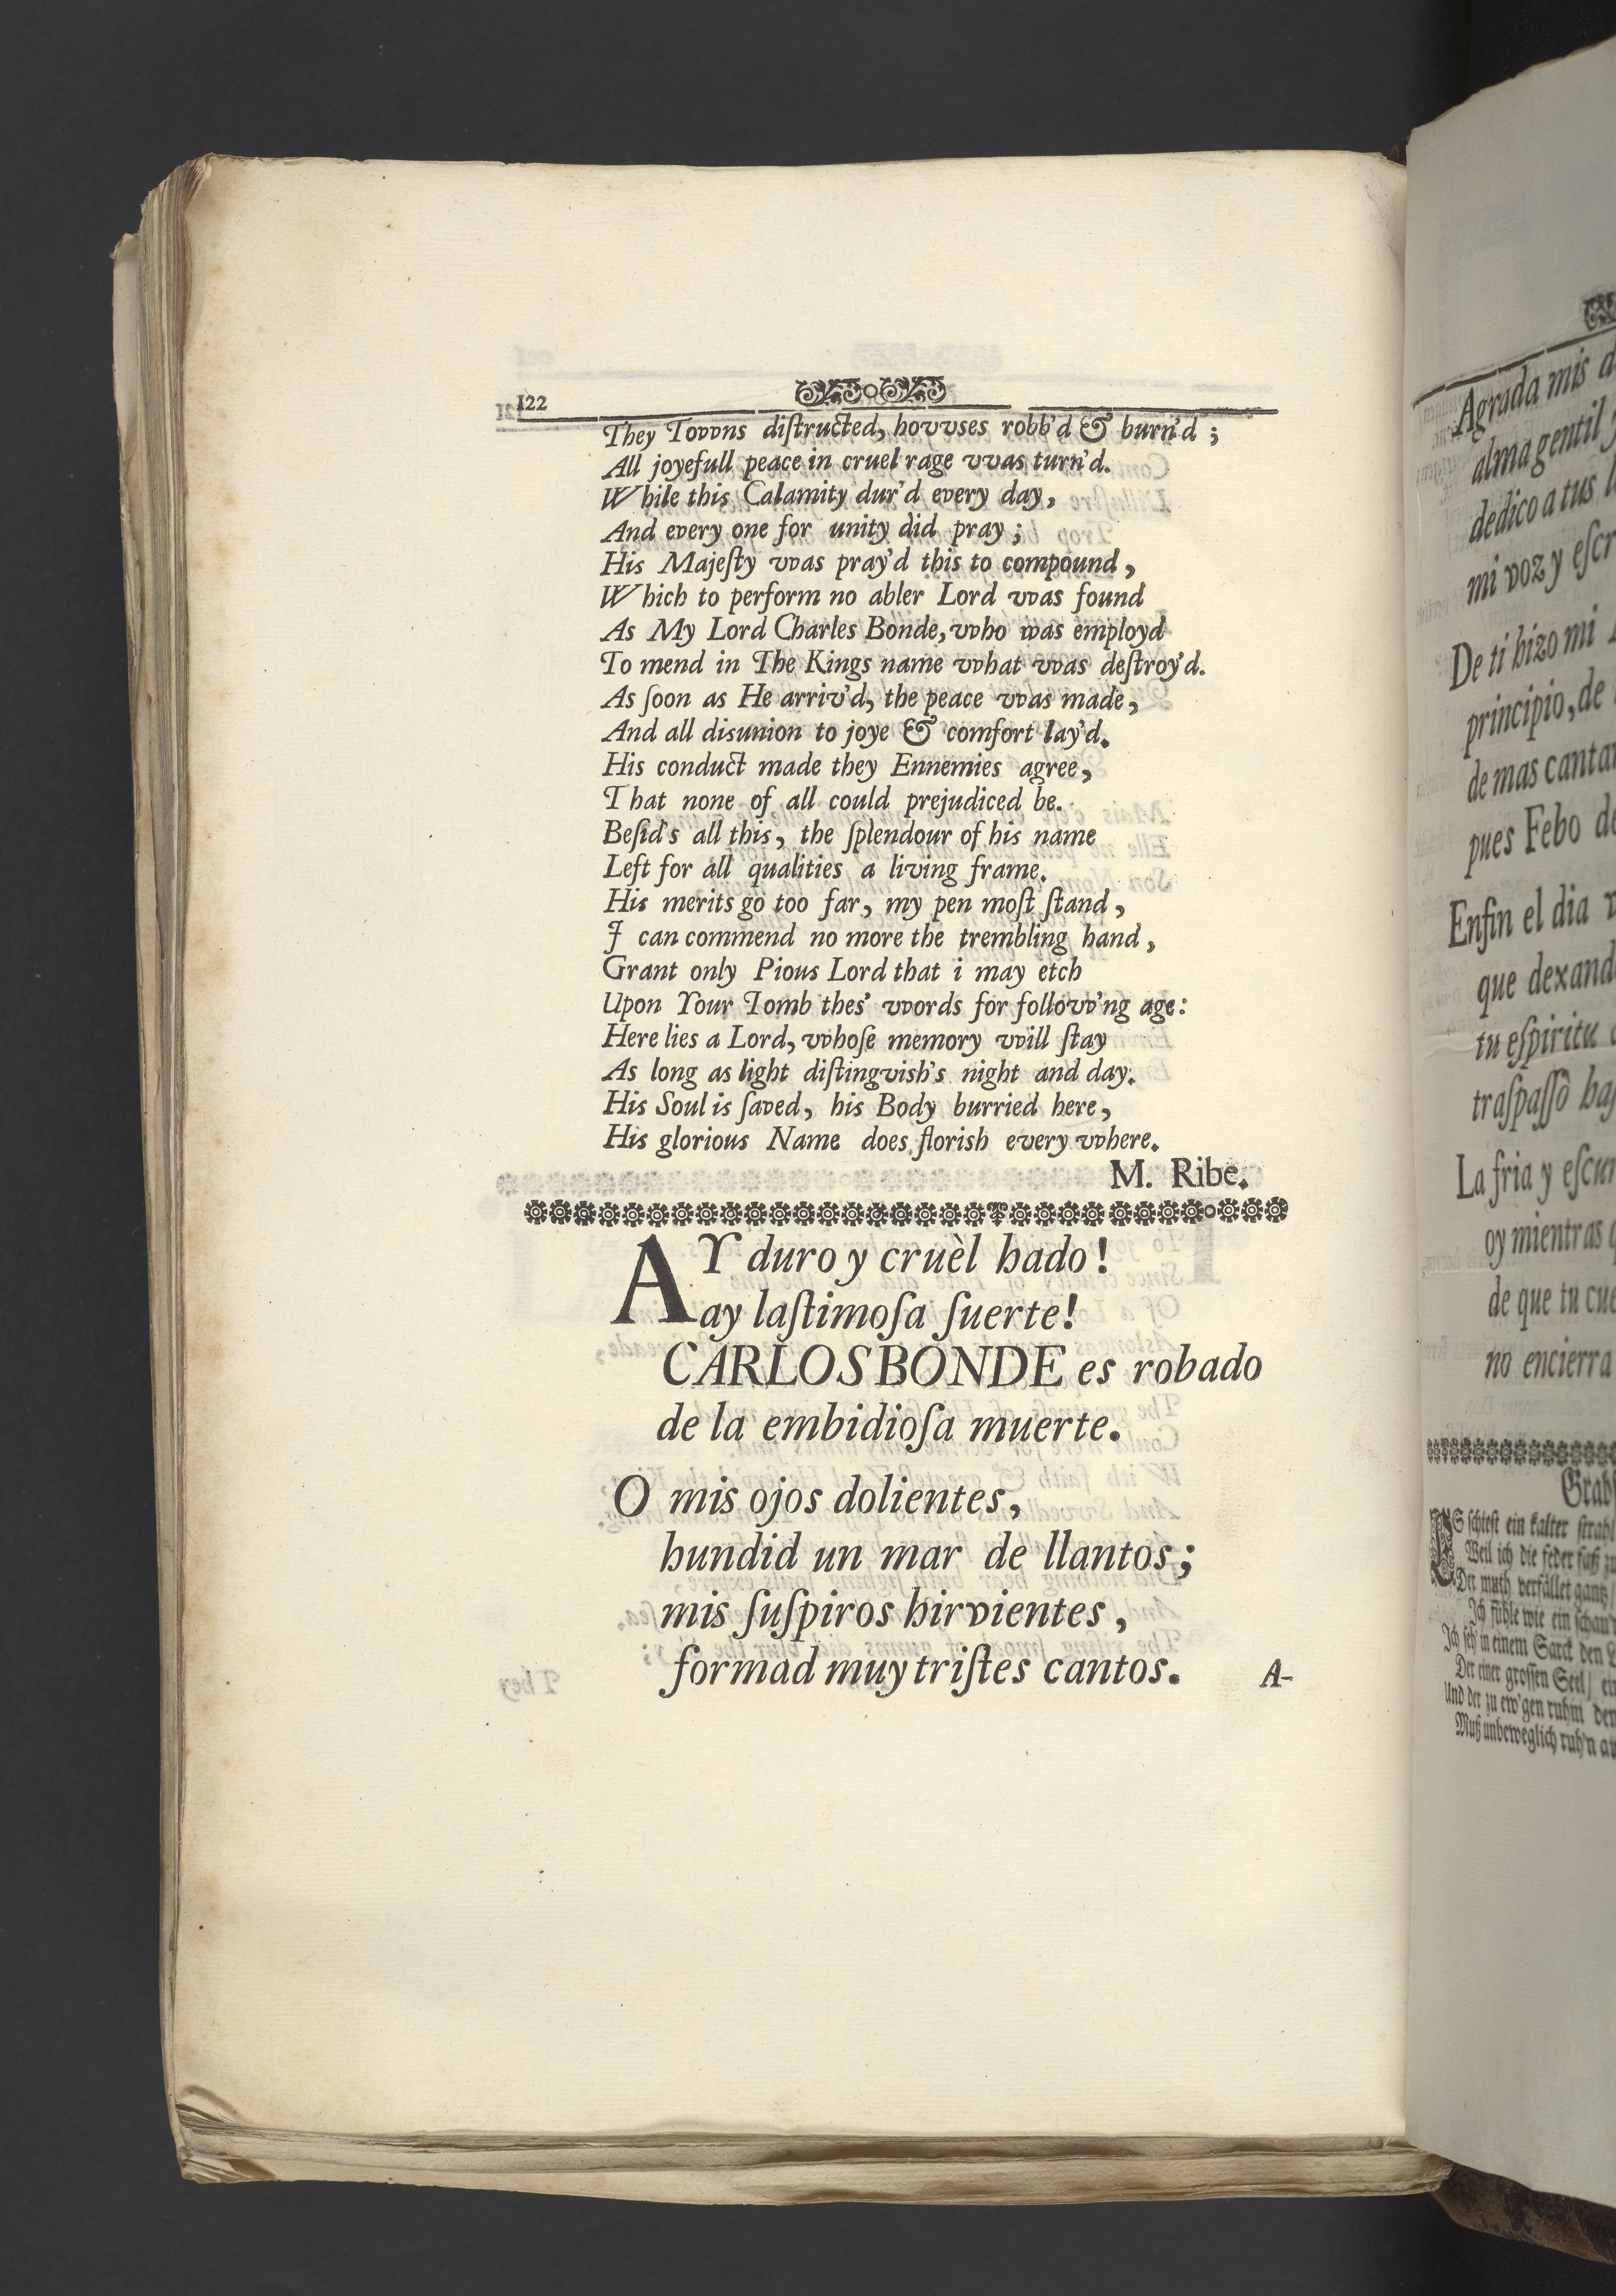 122
They Tovvns diſtructed, hovvses robb'd & burn'd ;
All joyefull peace in cruel rage vvas turn'd.
While this Calamity dur'd every day,
And every one for unity did pray ;
His Majeſty vvas pray'd this to compound,
Which to perform no abler Lord vvas found
As My Lord Charles Bonde, vvho was employd
To mend in The Kings name vvhat vvas deſtroy'd.
As ſoon as He arriv'd, the peace vvas made,
And all disunion to joye & comfort lay'd.
His conduct made they Ennemies agree,
That none of all could prejudiced be.
Beſid's all this, the ſplendour of his name
Left for all qualities a living frame.
His merits go too far, my pen moſt ſtand,
I can commend no more the trembling hand,
Grant only Pious Lord that i may etch
Upon Your Tomb thes' vvords for follovv'ng age:
Here lies a Lord, vvhoſe memory vvill ſtay
As long as light diſtingvish's night and day.
His Soul is ſaved, his Body burried here,
His glorious Name does florish every vvhere.
M. Ribe.
AY duro y cruèl hado !
ay laſtimoſa ſuerte!
CARLOS BONDE es robado
de la embidioſa muerte.
O mis ojos dolientes,
hundid un mar de llantos;
mis ſuſpiros hirvientes,
formad muy triſtes cantos.
A-
Agrada mis
alma gentil
dedico a tus
mi voz y eſcr
De ti hizo mi
principio, de
de mas cantar
pues Febo
Enfin el dia
que dexand
tu eſpiritu
traſpaſſò
La fria y eſcur
oy mientras
de que tu cue
no encierra
Grab
ES ſchieſt ein kalter ſtrahl
Weil ich die feder faß zu
Der muth verfället gantz
Ich fühle wie ein ſchau
Ich ſeh' in einem Sarck den
Der einer groſſen Seel/
Und der zu ew'gen ruhm
Muß unbeweglich ruh'n